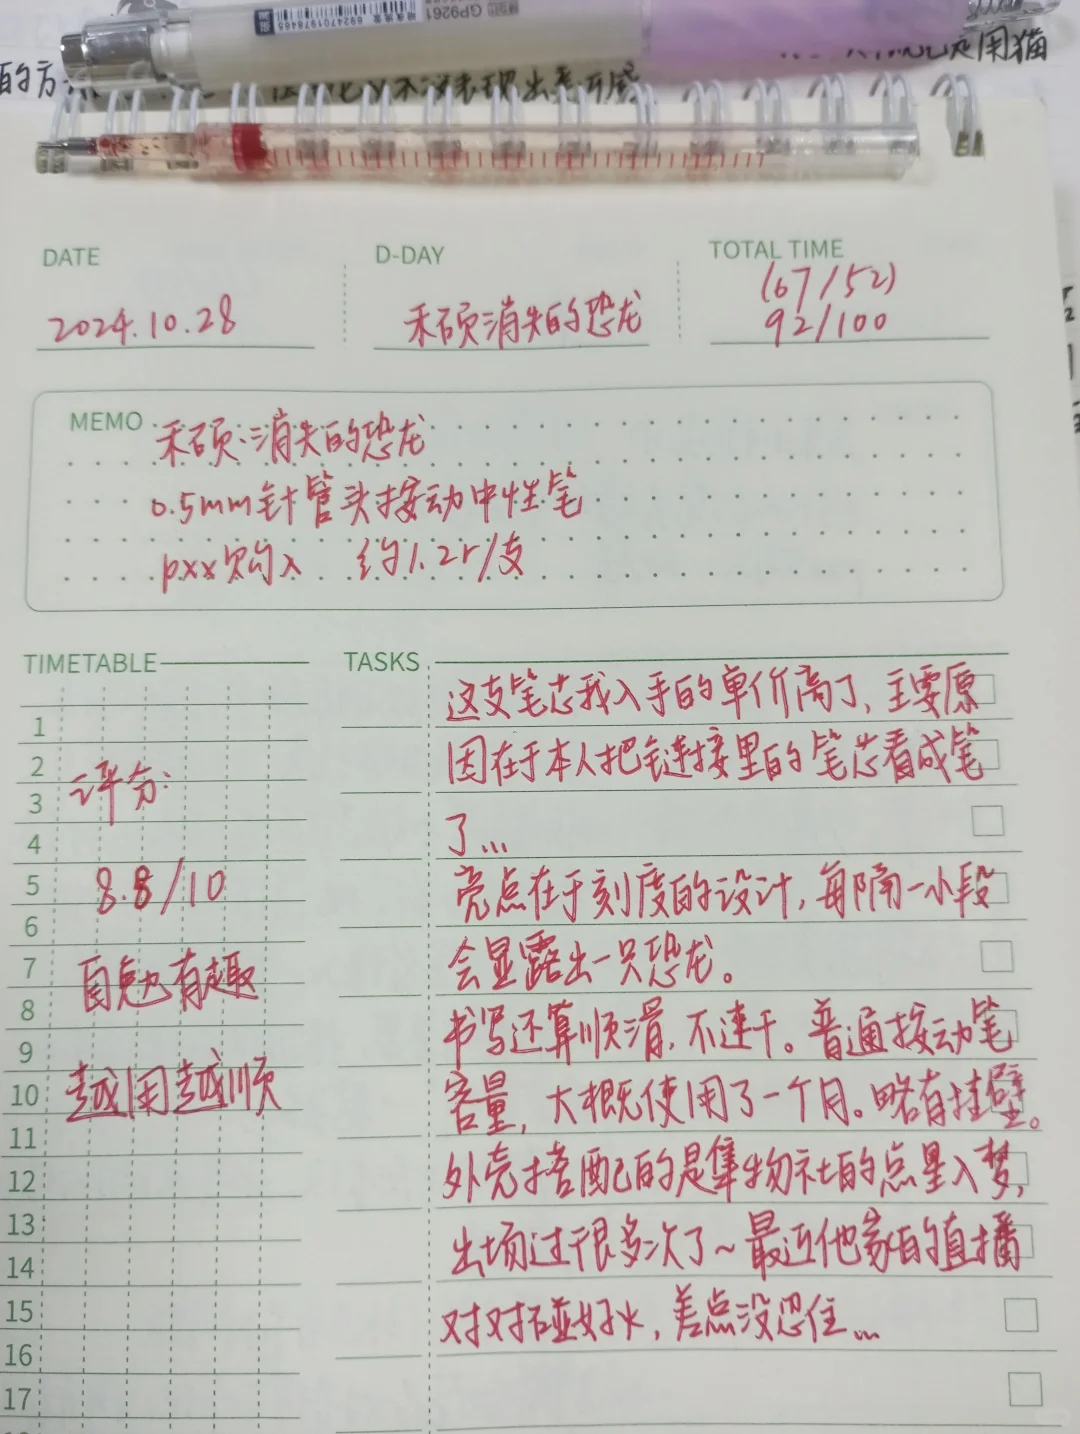 GP9261
6924701978465
用猫
DATE
D-DAY
TOTAL TIME
2024.10.28
禾硕消失的恐龙
(67/52)
92/100
MEMO
禾硕消失的恐龙
0.5mm针管头按动中性笔
pxx购入 约1.2r/支
TIMETABLE
1
2
3
4
5
6
7
8
9
10
11
12
13
14
15
16
17
评分:
8.8/10
自勉有趣
越用越顺
TASKS
这支笔芯我入手的单价高了,主要原
因在于本人把链接里的笔芯看成笔
了...
亮点在于刻度的设计,每隔一小段
会显露出一只恐龙。
书写还算顺滑,不速干。普通按动笔
容量,大概使用了一个月。略有挂壁。
外壳搭配的是隼物社的点星入梦,
出场过很多次了~最近他家的直播
对对碰好火,差点没忍住...